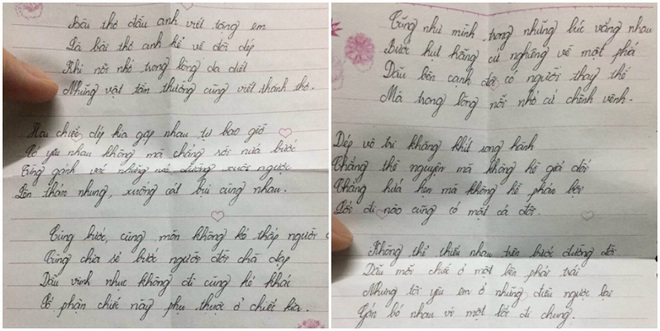 Bài thơ đầu anh viết tặng em
Là bài thơ anh kể về đôi dép
Khi nỗi nhớ trong lòng da diết
Những vật tầm thường cũng viết thành thơ.
Hai chiếc dép kia gặp nhau tự bao giờ
Có yêu nhau không mà chẳng rời nửa bước
Cùng gánh vác những đường xuôi ngược
Lên thảm nhung, xuống cát bụi cùng nhau.
Cùng bước, cùng mòn không kẻ thấp người
Cùng chia sẻ bước người đời chà đạp
Dẫu vinh nhục không đi cùng kẻ khác
Số phận chiếc này phụ thuộc ở chiếc kia.
Cũng như mình trong những lúc vắng nhau
Bước hụt hẫng cứ nghiêng về một phía
Dẫu bên cạnh đã có người thay thế
Mà trong lòng nỗi nhớ cứ chênh vênh.
Dép vô tri khăng khít song hành
Chẳng thề nguyện mà không hề giả dối
Chẳng hứa hẹn mà không hề phản bội
Lối đi nào cũng có mặt cả đôi.
Không thể thiếu nhau trên bước đường đời
Dẫu mỗi chiếc ở một bên phải trái
Nhưng tôi yêu em ở những điều ngược lại
Gắn bó nhau vì một lối đi chung.